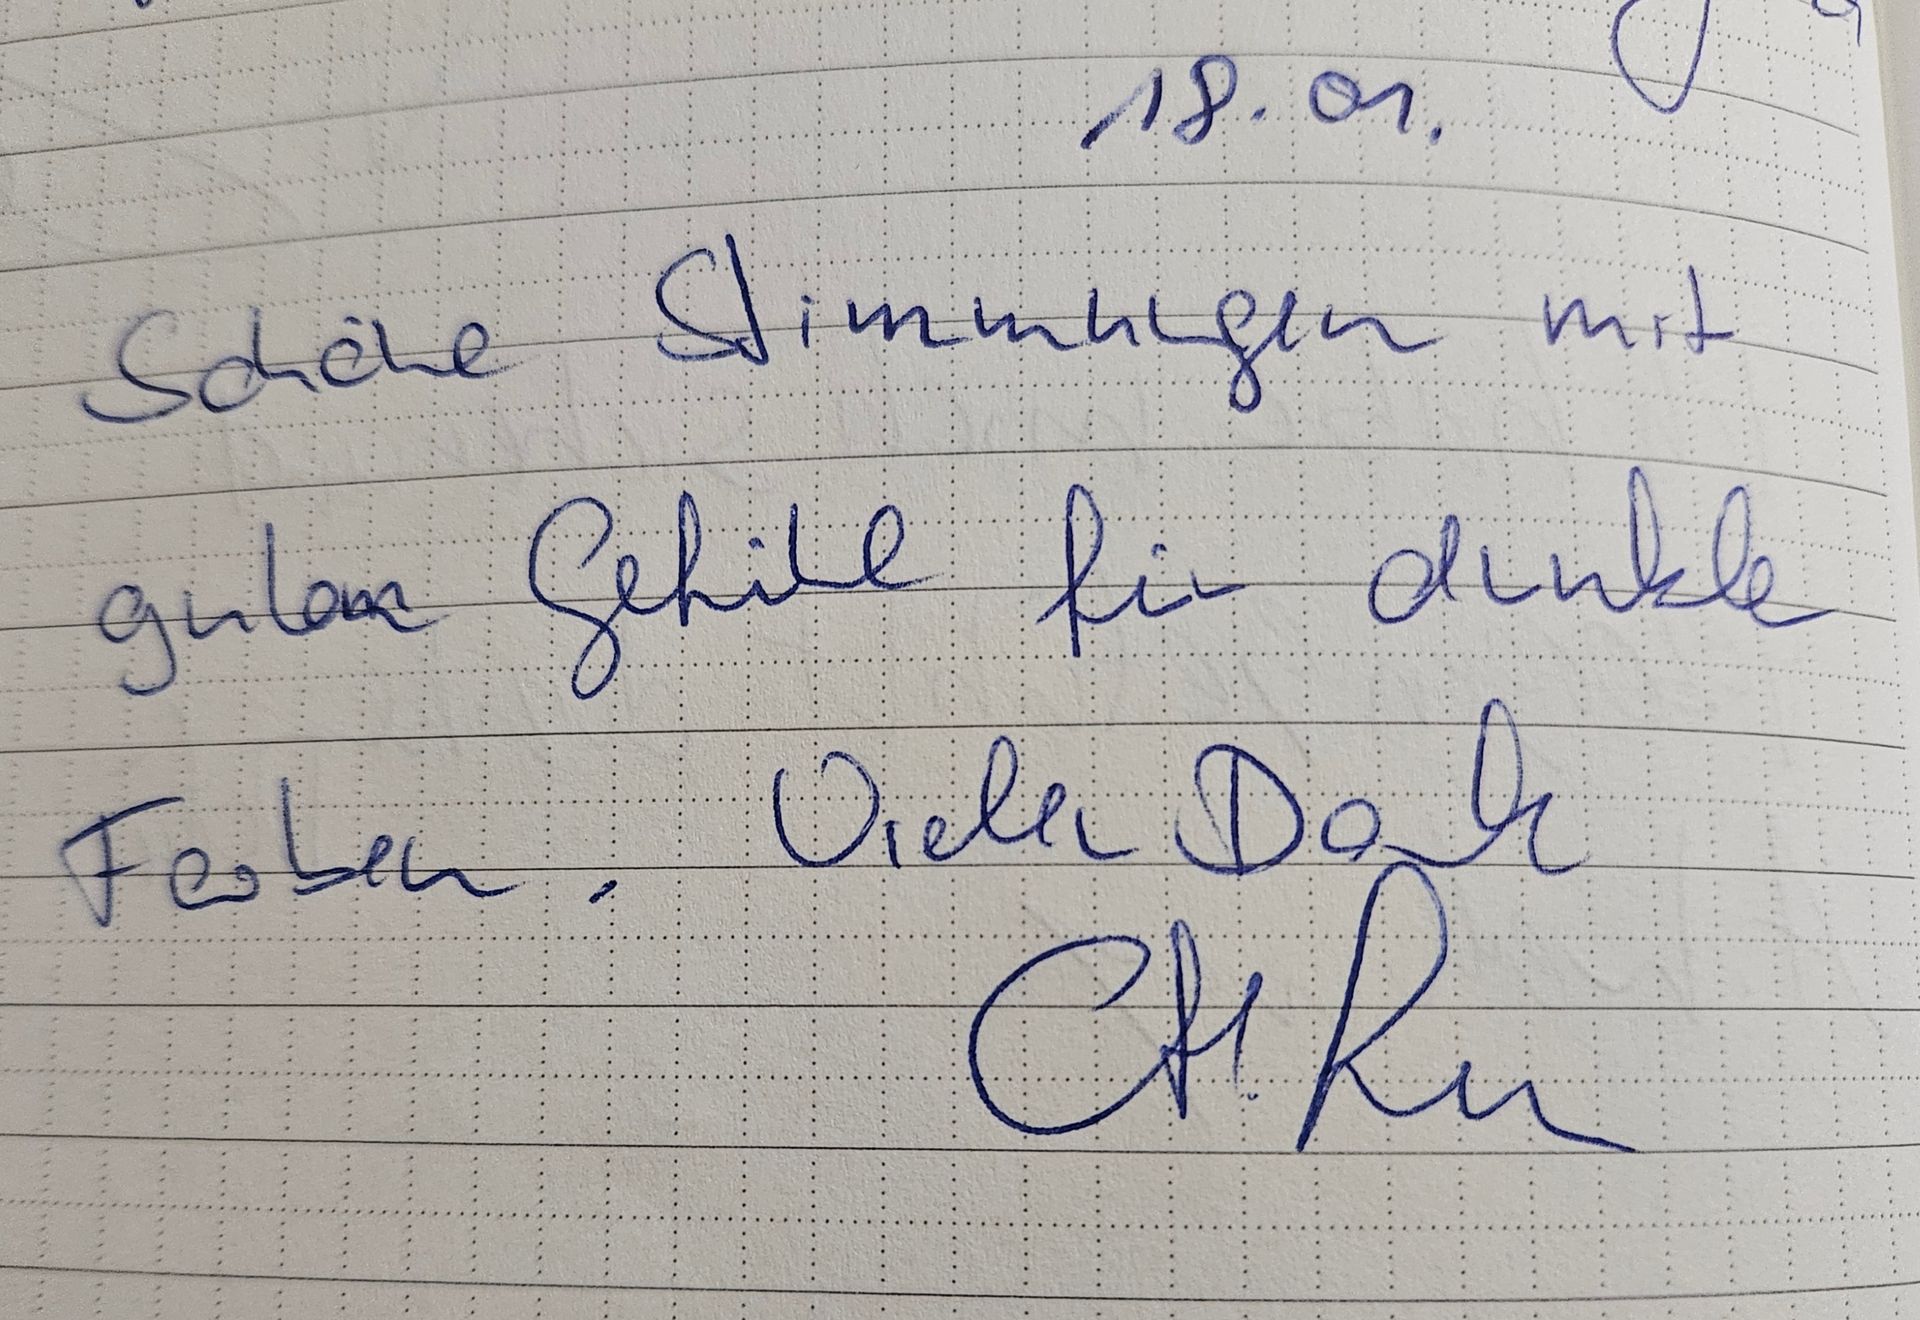 18.01.
Schöne Stimmungen mit
gutem Gefühl für dunkle
Farben. Vielen Dank